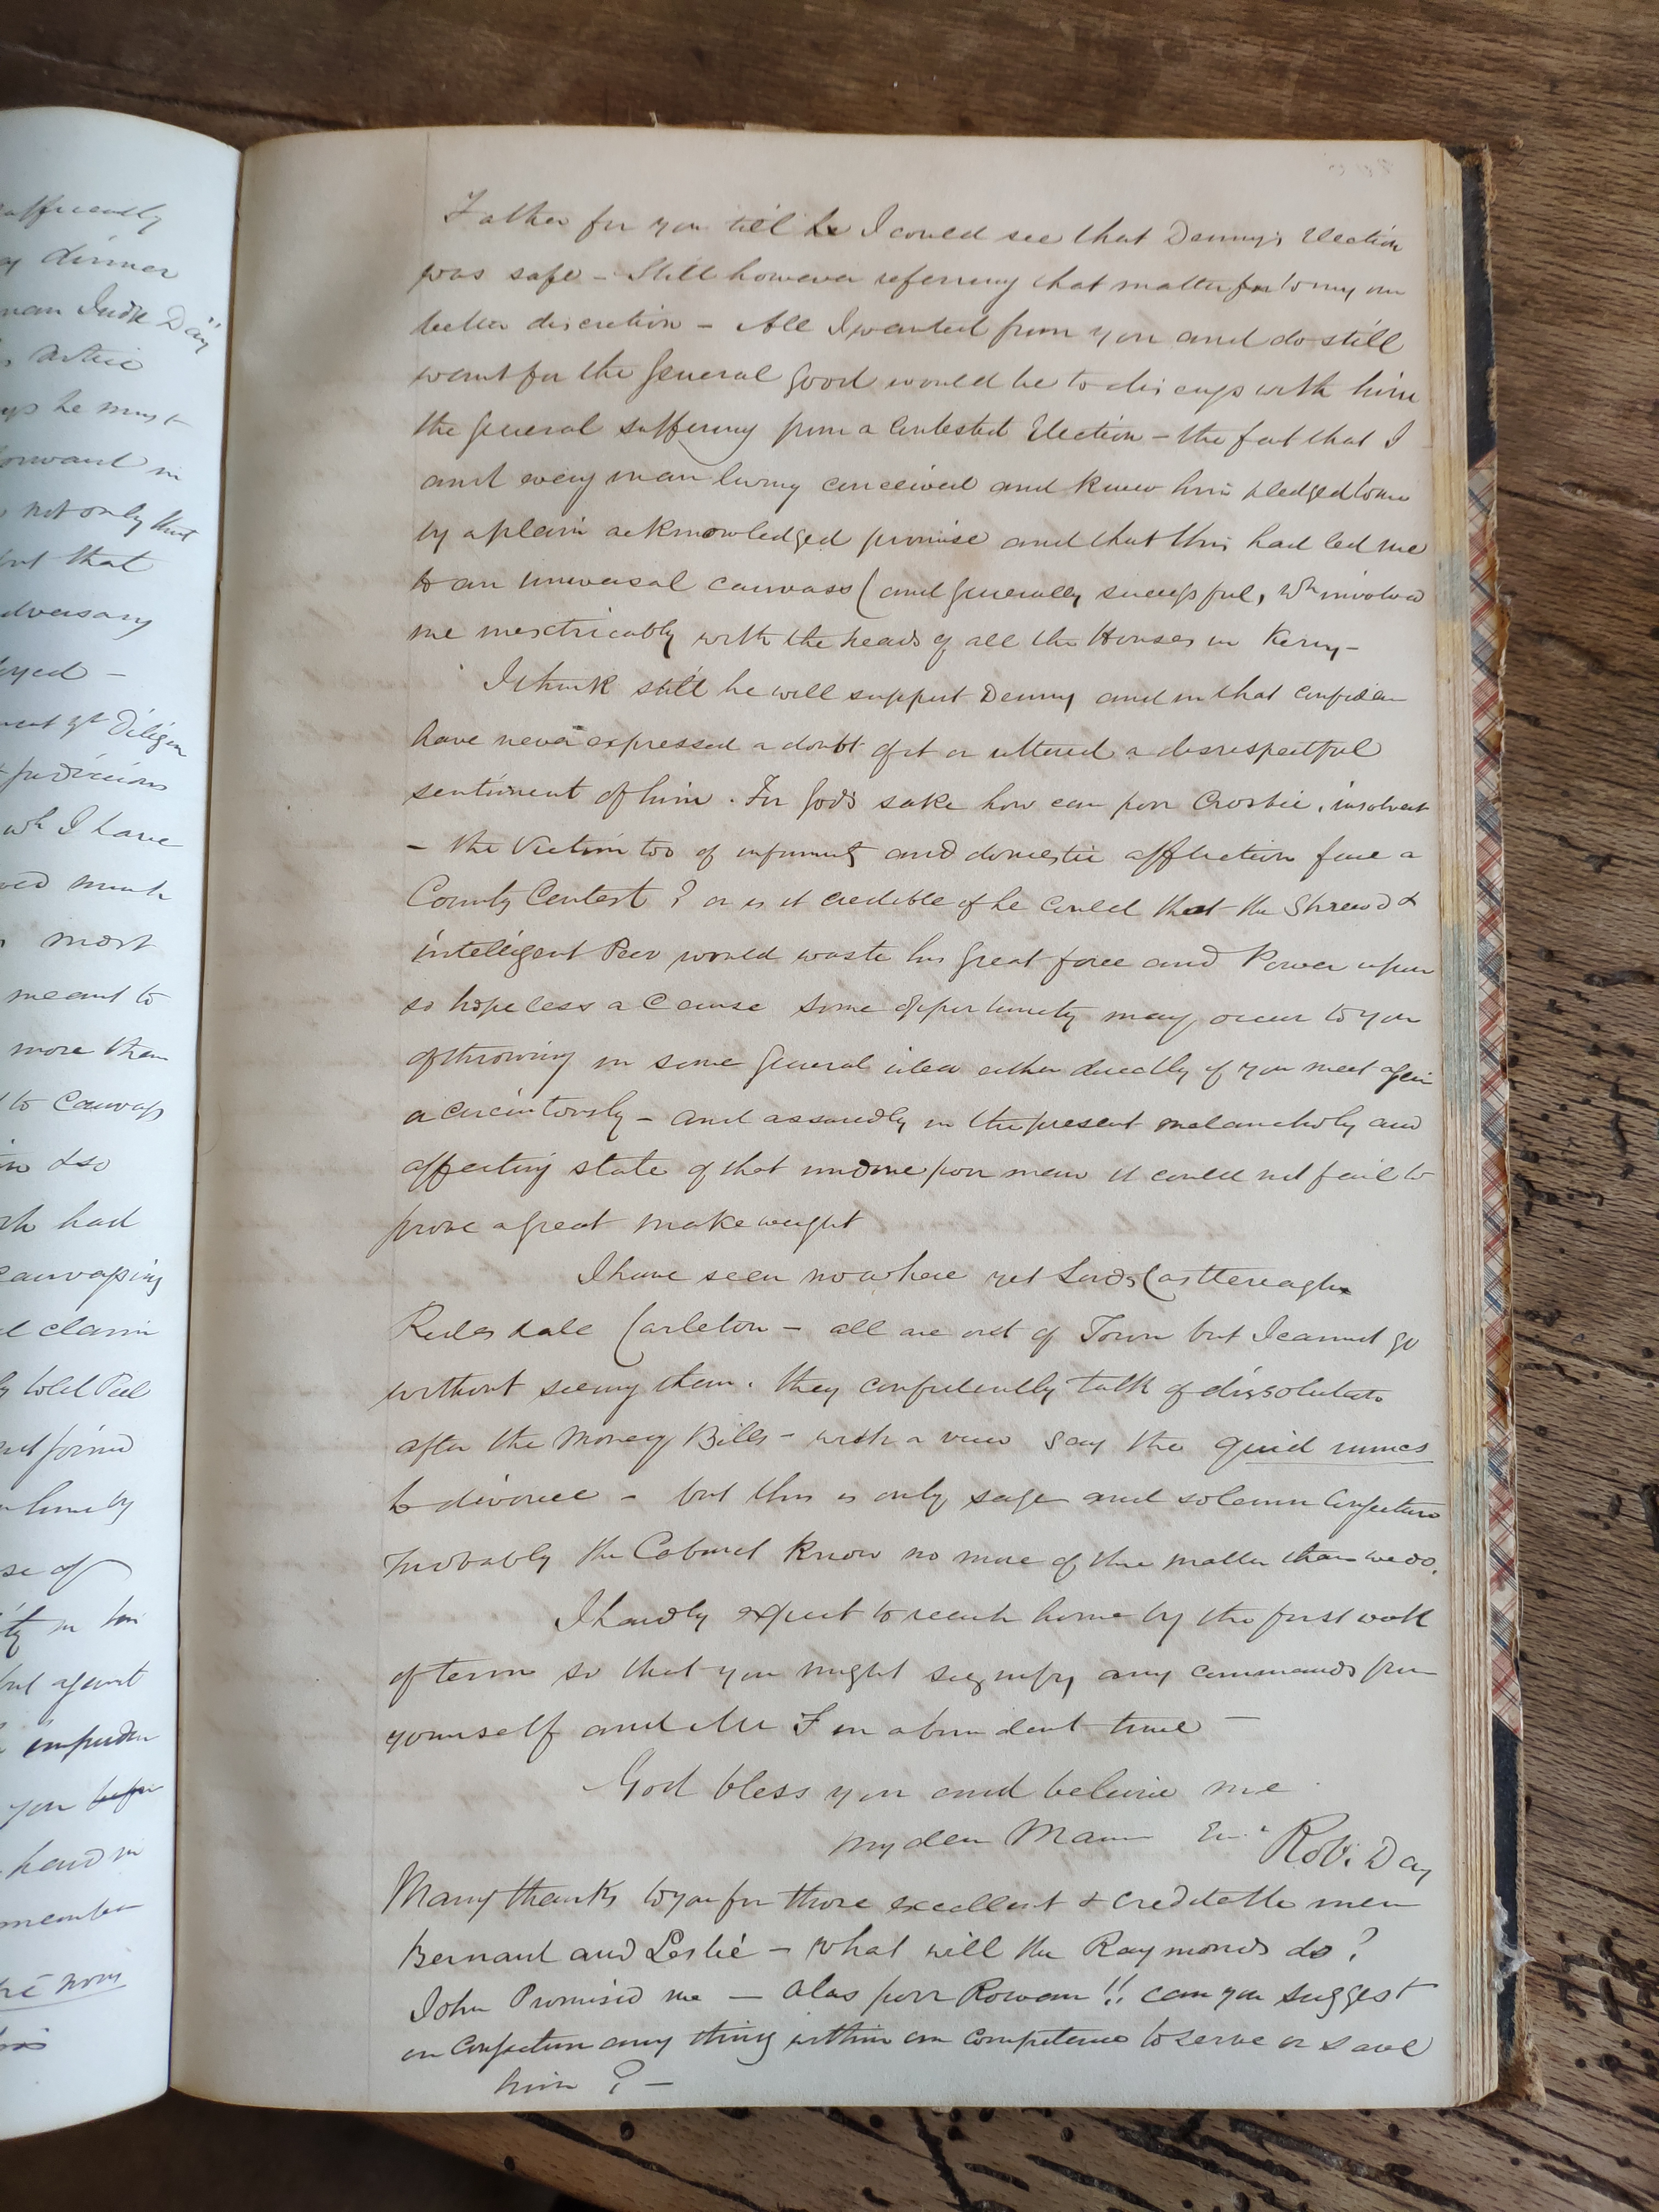 Father for you till he I could see that Denny's Election
was safe – Still however referring that matter for to my own
better discretion – All I wanted from you and do still
want for the General Good would be to discuss with him
the General suffering from a Contested Election – the fact that I
and every man living conceived and knew him pledged to me
by a plain acknowledged promise and that this had led me
to an universal canvass (and generally successful, wh involved
me inextricably with the heads of all the Houses in Kerry –
I think still he will support Denny and in that confiden
have never expressed a doubt of it or uttered a disrespectful
sentiment of him . For God's sake how can poor Crosbie , insolvent
– the Victim too of infirmity and domestic affliction face a
County Contest ? or is it credible if he could that the Shrewd &
intelligent Peer would waste his great force and Power upon
so hopeless a Cause some opportunity may occur to you
of throwing in some General idea either directly if you meet again
or circuitously – and assuredly in the present melancholy and
affecting state of that undone poor man it could not fail to
prove a great make weight
I have seen nowhere yet Lords Castlereagh
Redesdale Carleton – all are out of Town but I cannot go
without seeing them . they confidently talk of dissolution
after the Money Bills – with a view say the quid nuncs
to divorce – but this is only sage and solemn Conjecture
Probably the Cabinet know no more of the matter than we do.
I hardly expect to reach home by the first week
of term so that you might signify any commands from
yourself and Mr F in abundant time –
God bless you and believe me
my dear Maur Eur Robt Day
Many thanks to you for those excellent & creditable men
Bernard and Leslie – What will the Raymonds do ?
John Promised me – alas poor Rowan !! can you suggest
or Conjecture any thing within our Competence to serve or save
him ? –
sufficiently
dinner
man Judge Day
he must
forward in
not only that
but that
adversary
Diligen
judicious
wh I have
much
most
meant to
more than
to Canvass
do
had
canvassing
claim
told Peel
not joined
him by
use of
in his
but against
impuden
you before
hand in